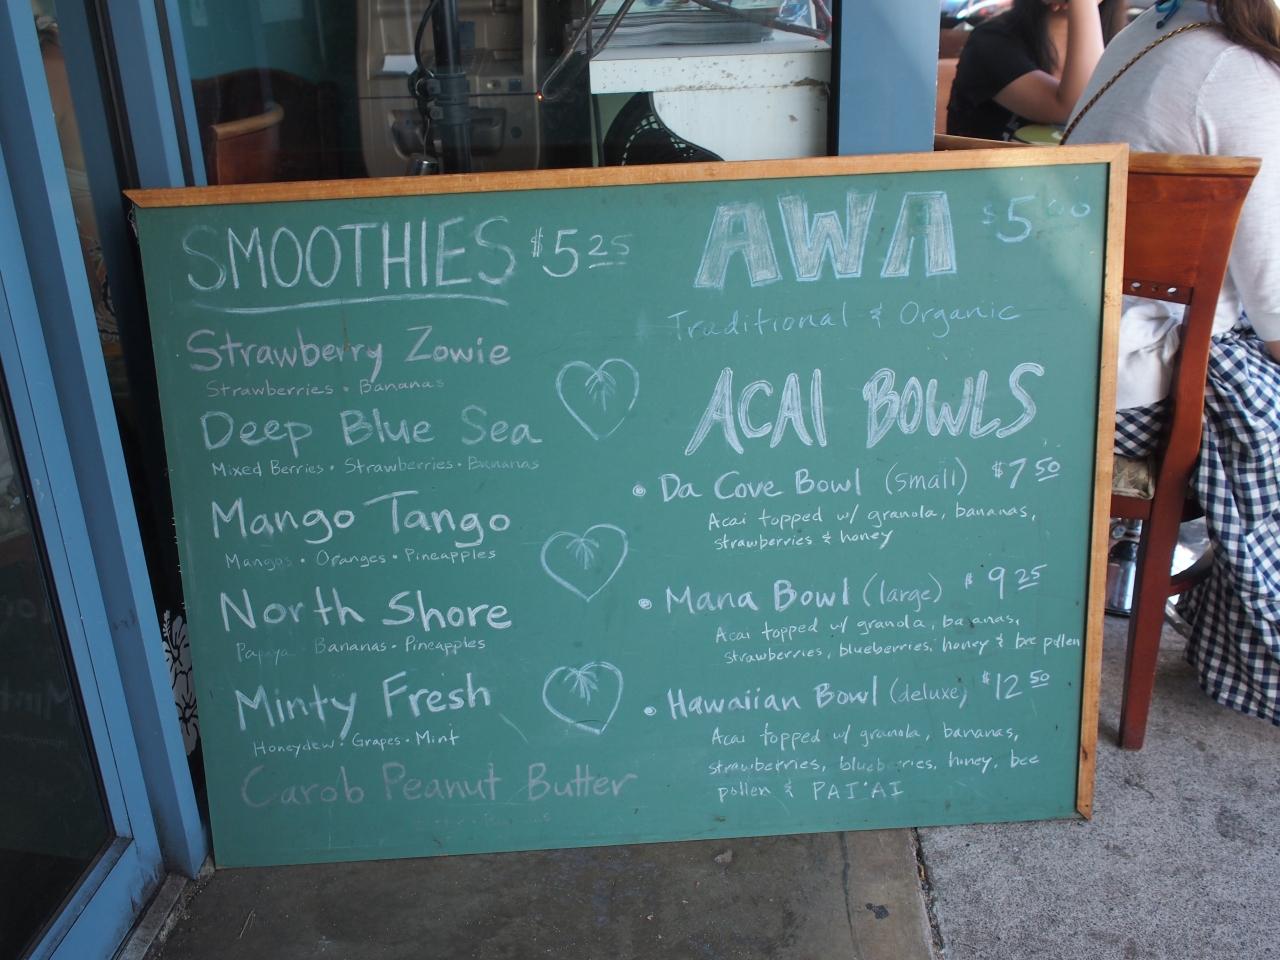 SMOOTHIES $5.25
Strawberry Zowie
Strawberries • Bananas
Deep Blue Sea
Mixed Berries • Strawberries • Bananas
Mango Tango
Mangos • Oranges • Pineapples
North Shore
Papaya Bananas • Pineapples
Minty Fresh
Honeydew • Grapes • Mint
Carob Peanut Butter
AWA $5.00
Traditional & Organic
ACAI BOWLS
• Da Cove Bowl (small) $7.50
Acai topped w/ granola, bananas,
strawberries & honey
• Mana Bowl (large) $9.25
Acai topped w/ granola, bananas,
strawberries, blueberries, honey & bee pollen
• Hawaiian Bowl (deluxe) $12.50
Acai topped w/ granola, bananas,
strawberries, blueberries, honey, bee
pollen & PAI'AI